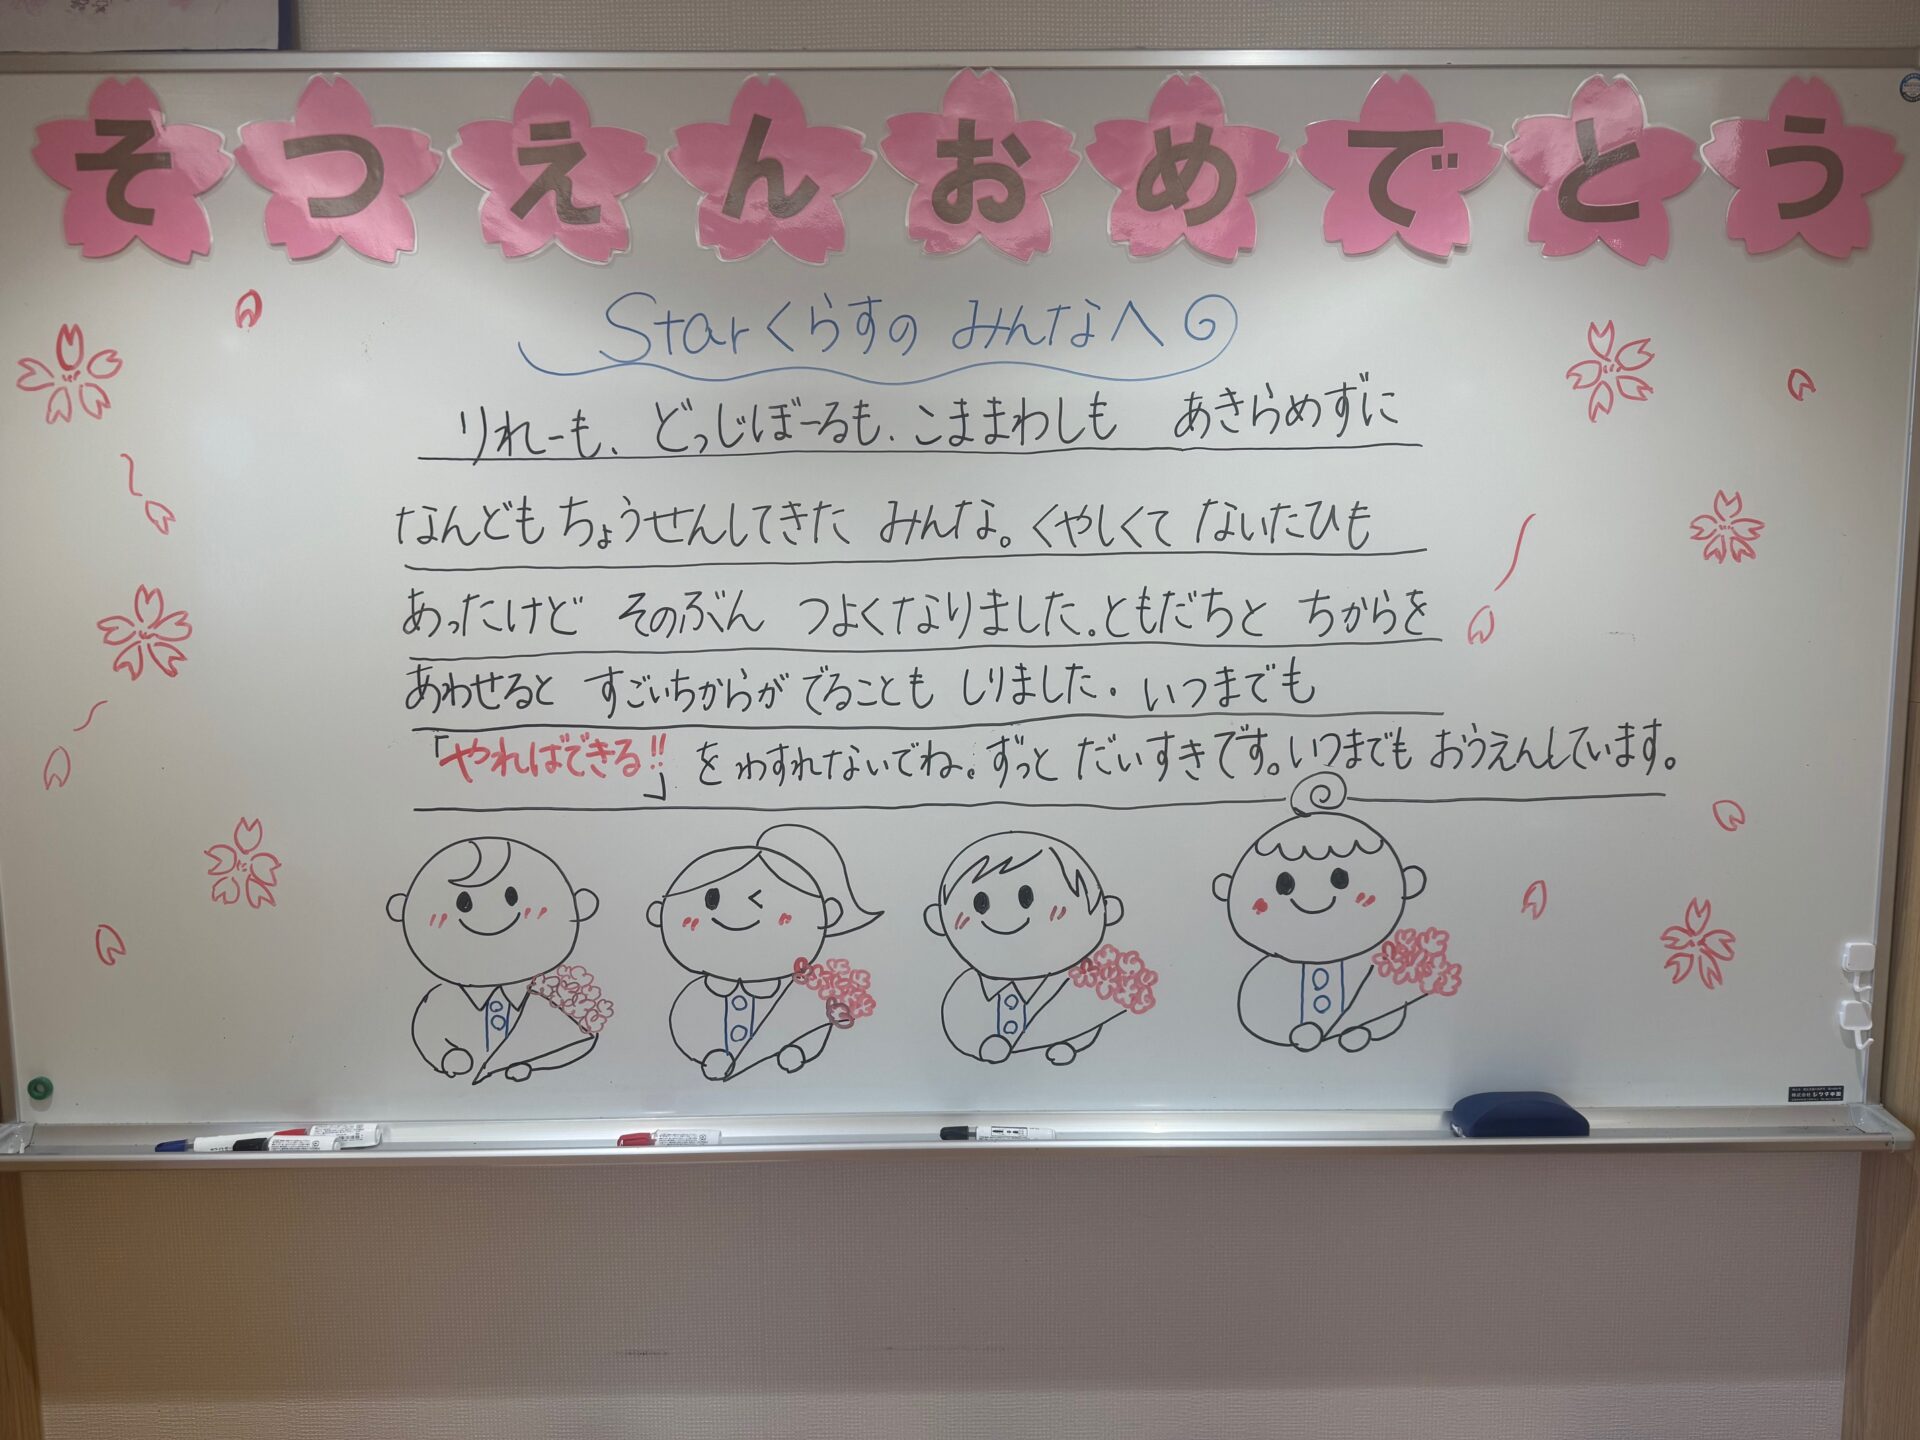 そつえんおめでとう
Starくらすの みんなへ
りれーも、どっじぼーるも、こままわしも あきらめずに
なんども ちょうせんしてきた みんな。くやしくて ないたひも
あったけど そのぶん つよくなりました。ともだちと ちからを
あわせると すごいちからが でることも しりました。いつまでも
「やればできる!!」を わすれないでね。ずっと だいすきです。いつまでも おうえんしています。